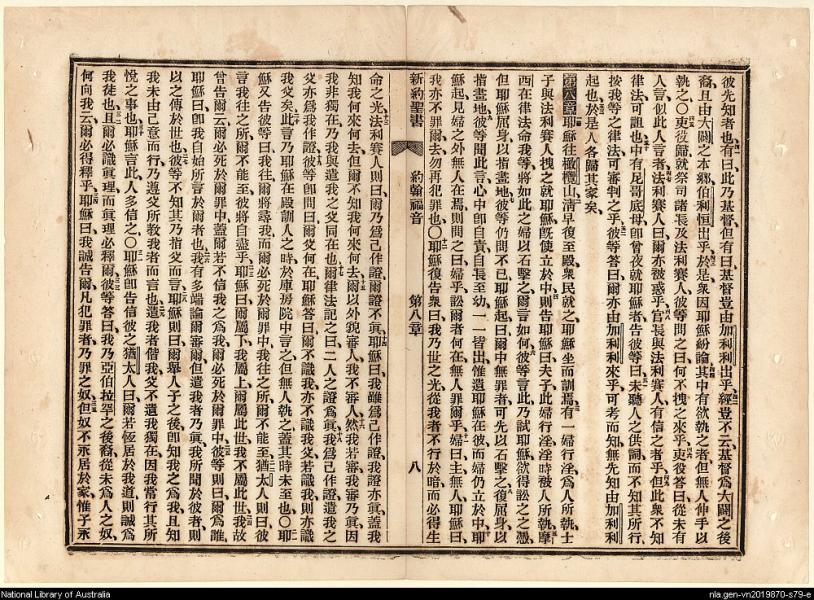 彼先知者也有曰此乃基督但有曰基督豈由加利利出乎經豈不云基督爲大闢之後
裔且由大闢之本鄉伯利恒出乎於是衆因耶穌紛論其中有欲執之者但無人伸手以
執之〇吏役歸就祭司諸長及法利賽人彼等問之曰何不拽之來乎吏役答曰從未有
人言似此人言者法利賽人曰爾亦被惑乎官長與法利賽人有信之者乎但此衆不知
律法可詛也中有尼哥底母卽曾夜就耶穌者告彼等曰未聽人之供詞而不知其所行
按我等之律法可審判之乎彼等答曰爾亦由加利利來乎可考而知無先知由加利利
起也於是人各歸其家矣
第八章耶穌往橄欖山清早復至殿衆民就之耶穌坐而訓焉有一婦行淫爲人所執士
子與法利賽人拽之就耶穌旣使立於中則告耶穌曰夫子此婦行淫淫時被人所執摩
西在律法命我等將如此之婦以石擊之爾言如何彼等言此乃試耶穌欲得訟之之憑
但耶穌屈身以指畫地彼等仍問不已耶穌起曰爾中無罪者可先以石擊之復屈身以
指畫地彼等聞此言心中卽自責自長至幼一一皆出惟遺耶穌在彼而婦仍立於中耶
穌起見婦之外無人在焉則問之曰婦乎訟爾者何在無人罪爾乎婦曰主無人耶穌曰
我亦不罪爾去勿再犯罪也〇耶穌復告衆曰我乃世之光從我者不行於暗而必得生
新約聖書 約翰福音 第八章 八
命之光法利賽人則曰爾乃爲己作證爾證不眞耶穌曰我雖爲己作證我證亦眞蓋我
知我何來何去但爾不知我何來何去爾以外貌審人我不審人然我若審我審乃眞因
我非獨在乃我與遣我之父同在也爾律法記之曰二人之證爲眞我爲己作證遣我之
父亦爲我作證彼等卽問曰爾父何在耶穌答曰爾不識我亦不識我父若識我則亦識
我父矣此言乃耶穌在殿訓人之時於庫房院中言之但無人執之蓋其時未至也〇耶
穌又告彼等曰我往爾將尋我而爾必死於罪中我往之所爾不能至猶太人則曰彼
言我往之所爾不能至彼將自盡乎耶穌曰爾屬下我屬上爾屬此世我不屬此世我故
曾告爾云爾必死於爾罪中蓋爾若不信我之爲我爾必死於爾罪中彼等則曰爾爲誰
耶穌曰卽我自始所言於爾者也我有多端論爾審爾但遣我者乃眞我所聞於彼者則
以之傳於世也彼等不知其乃指父而言耶穌則曰爾舉人子之後卽知我之爲我且知
我未由己意而行乃遵父所敎我者而言也遣我者偕我父不遺我獨在因我常行其所
悅之事也耶穌言此人多信之〇耶穌卽告信彼之猶太人曰爾若恆居於我道則誠爲
我徒也且爾必識眞理而眞理必釋爾彼等答曰我乃亞伯拉罕之後裔從未爲人之奴
何向我云爾必得釋乎耶穌曰我誠告爾凡犯罪者乃罪之奴但奴不永居於家惟子永
National Library of Australia
nla.gen-vn2019870-s79-e